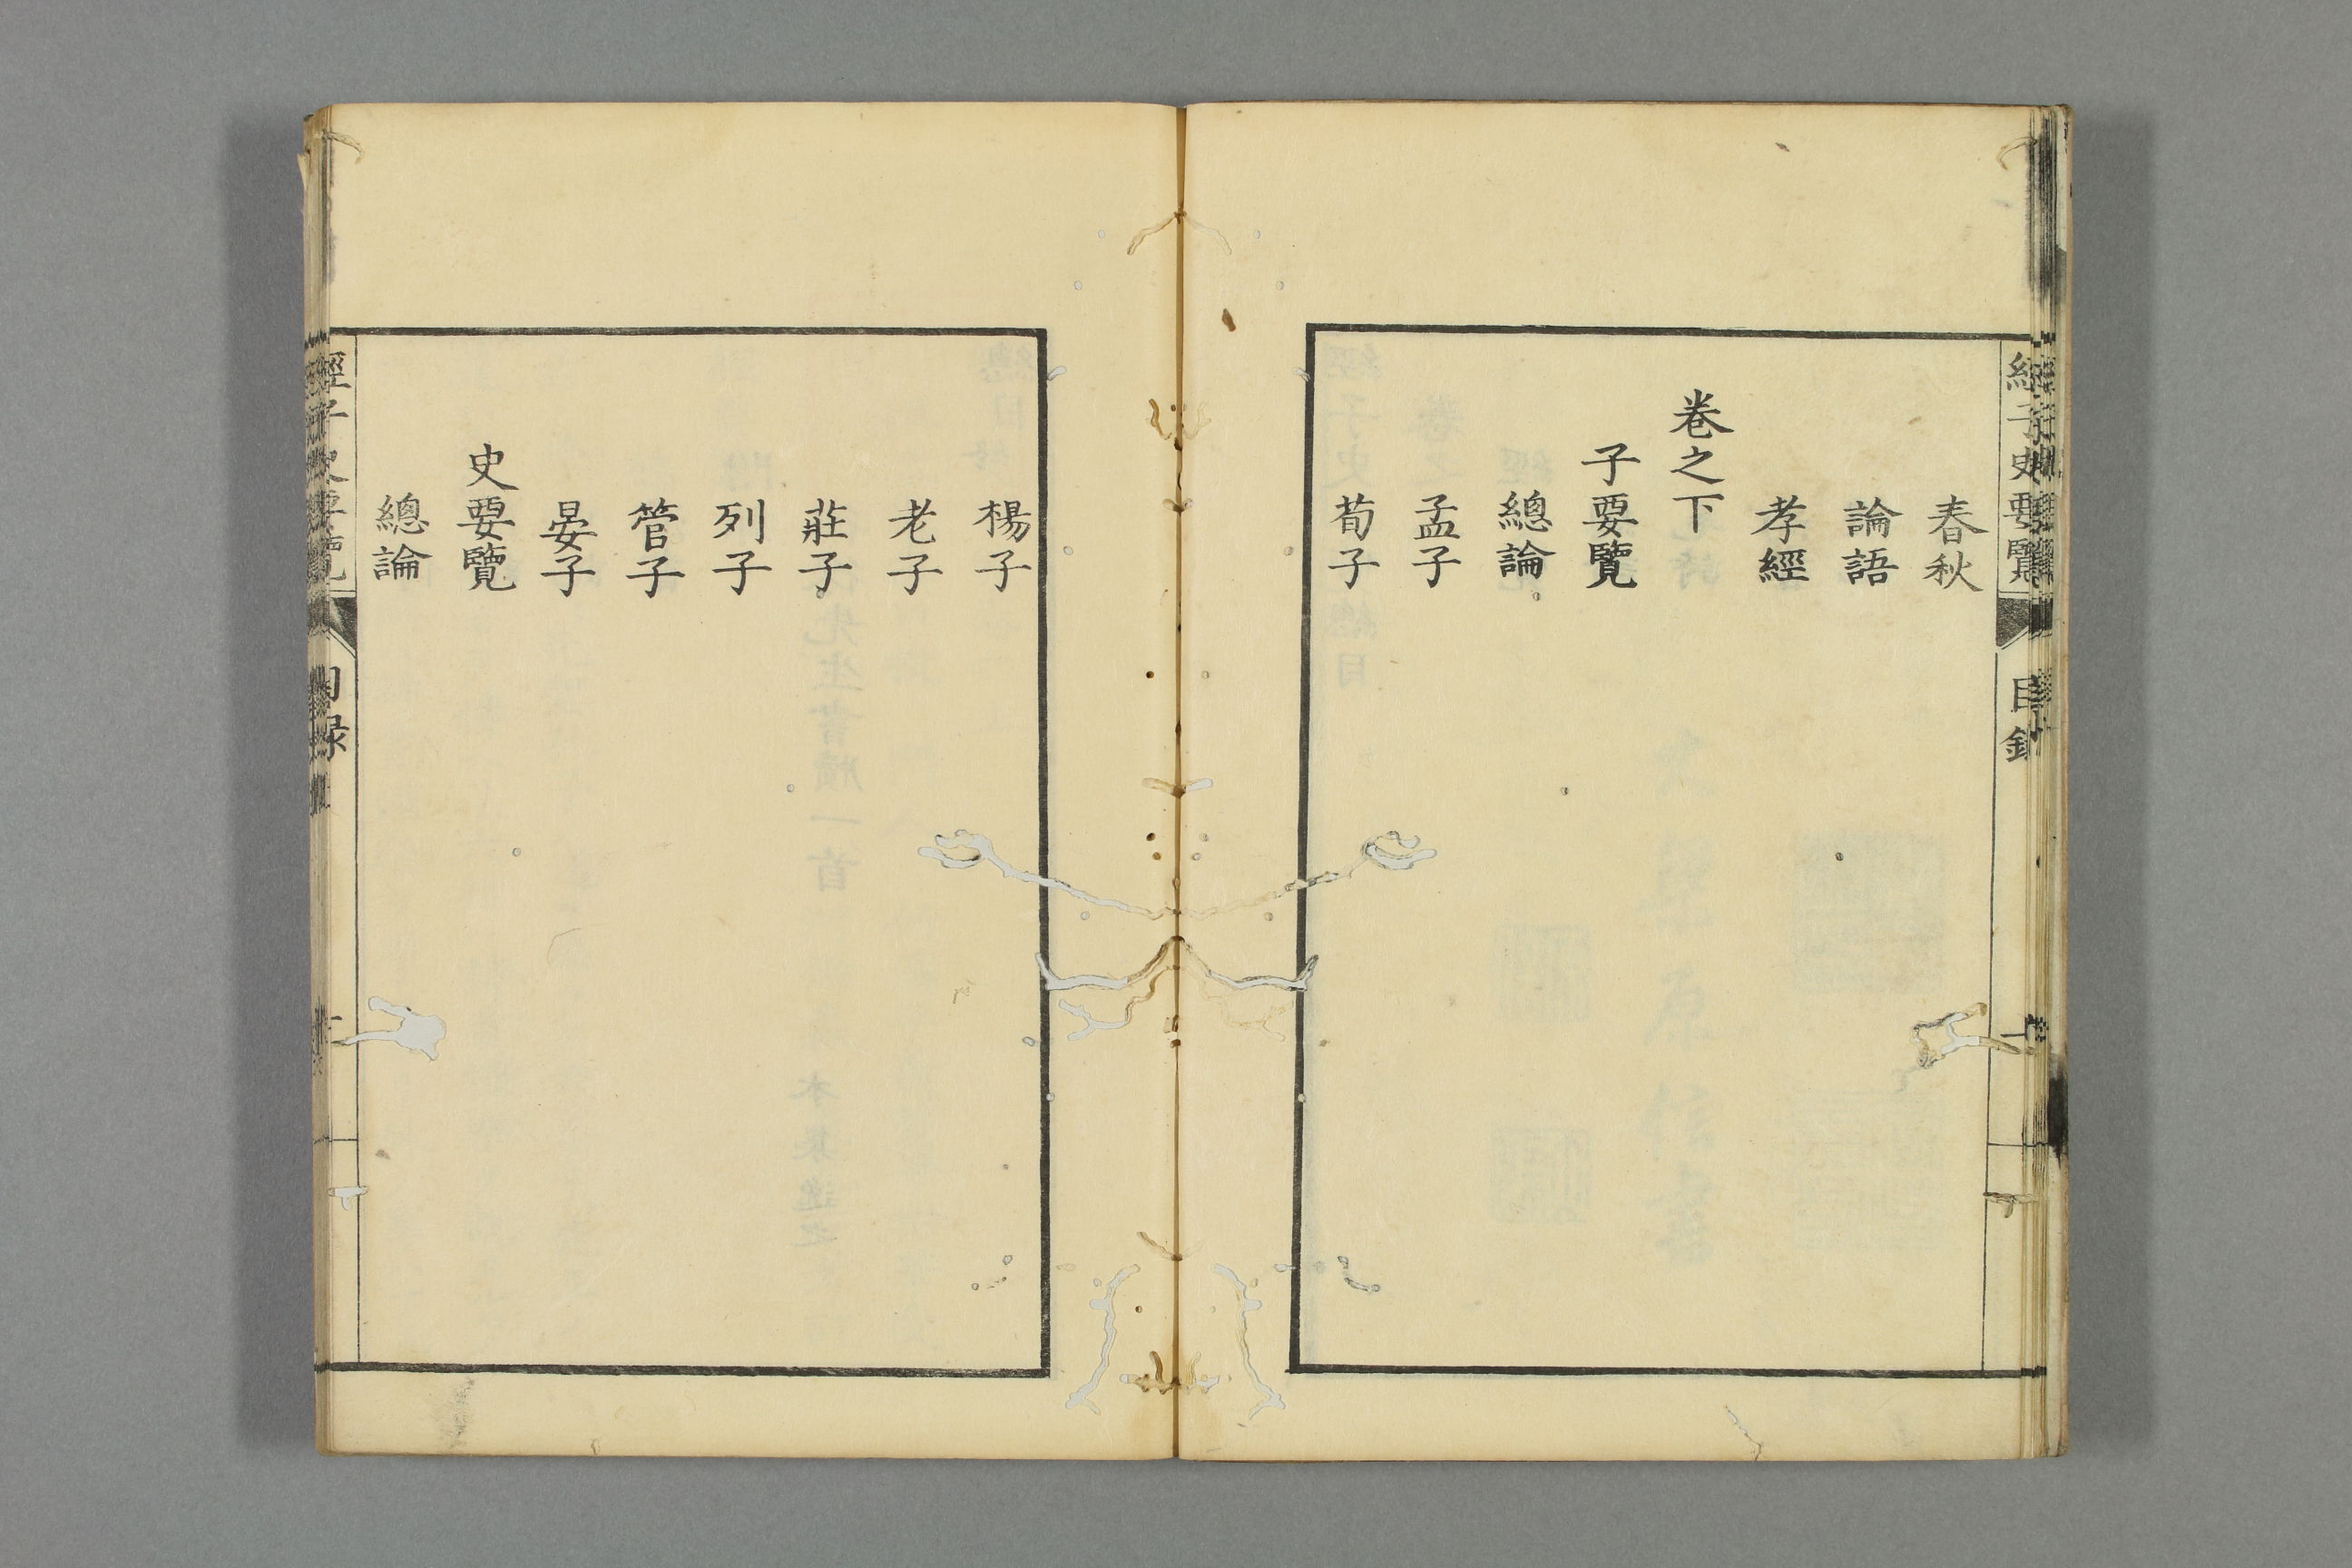 經子史要覽 目錄 一
春秋
論語
孝經
卷之下
子要覽
總論
孟子
荀子
楊子
老子
莊子
列子
管子
晏子
史要覽
總論
經子史要覽 目録